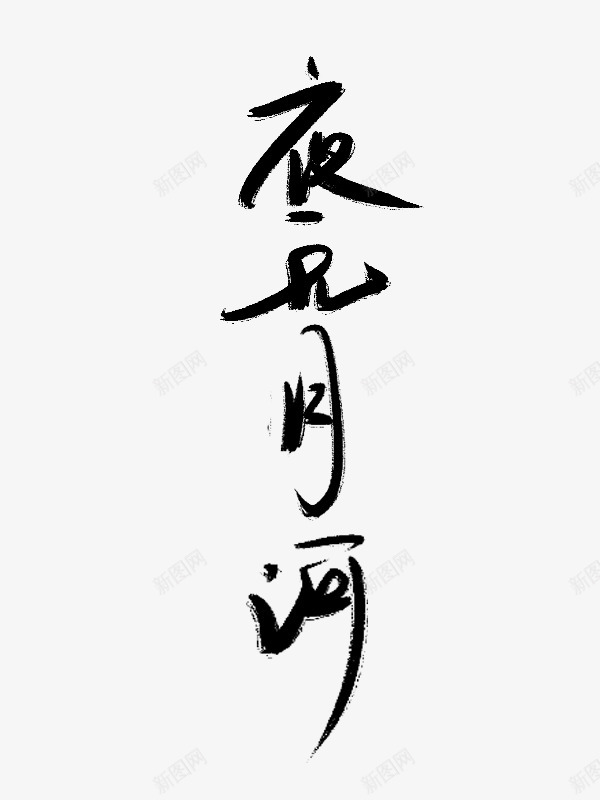 夜
月
河
新图网
新图网
新图网
新图网
新图网
新图网
新图网
新图网
新图网
新图网
新图网
新图网